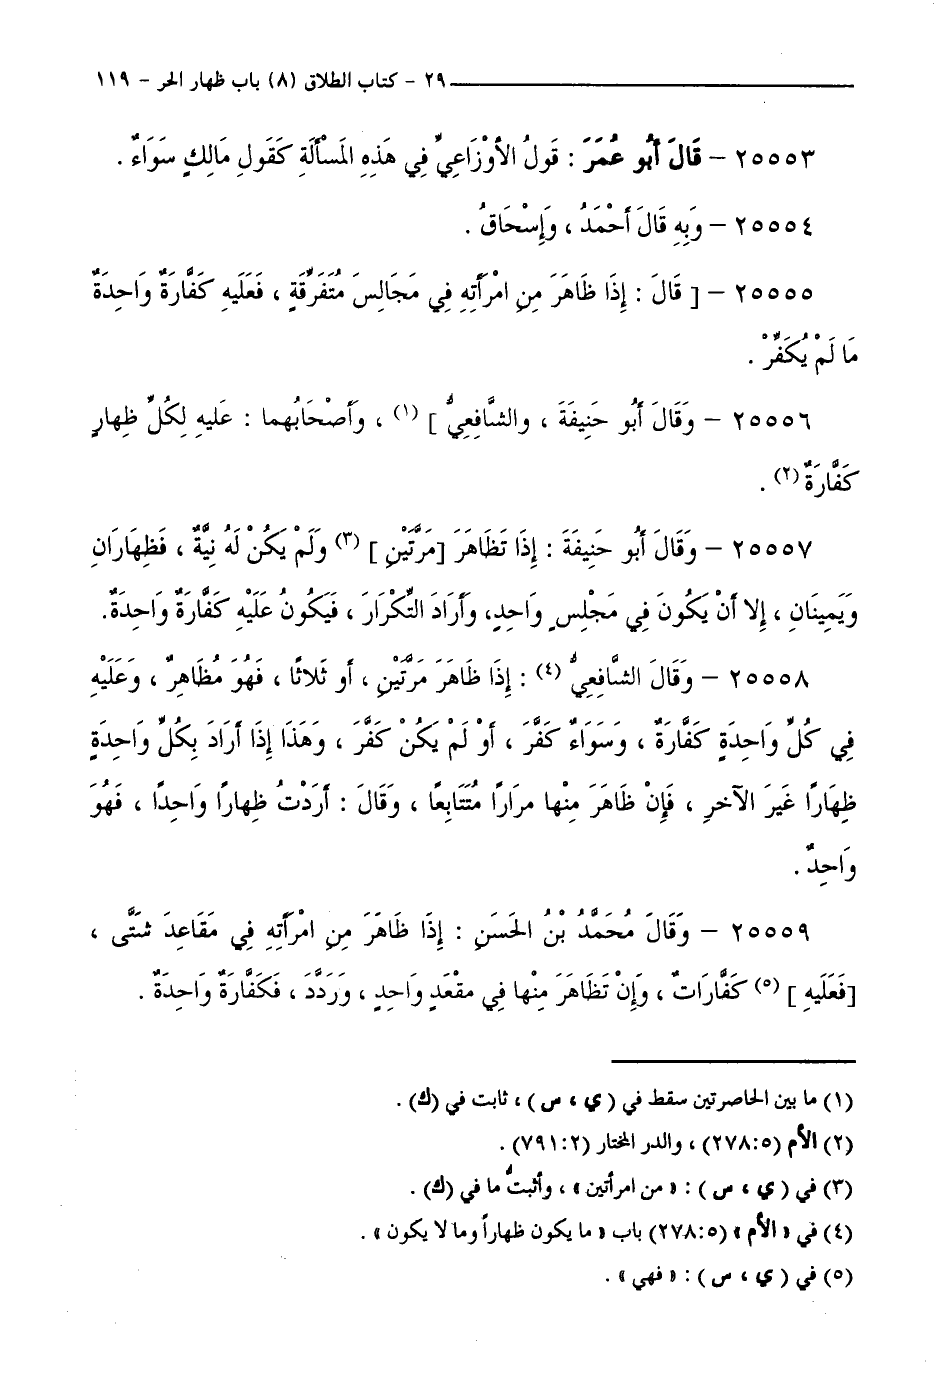 ٢٩ - كتاب الطلاق (٨) باب ظهار الحر - ١١٩
٢٥٥٥٣ – قَالَ أَبُو عُمَرَ : قَولُ الأوْزَاعِيِّ فِي هَذِهِ المَسْأَلَةِ كَقَولِ مَالِكٍ سَوَاءٌ .
٢٥٥٥٤ – وَبِهِ قَالَ أَحْمَدُ ، وَإِسْحَاقُ .
٢٥٥٥٥ – [ قَالَ : إِذَا ظَاهَرَ مِنِ امْرَأَتِهِ فِي مَجَالِسَ مُتَفَرِّقَةٍ ، فَعَلَيهِ كَفَّارَةٌ وَاحِدَةٌ
مَا لَمْ يُكَفِّرْ .
٢٥٥٥٦ – وَقَالَ أَبُو حَنِيفَةَ ، والشَّافِعِيُّ ] (١) ، وَأَصْحَابُهما : عَليهِ لِكُلِّ ظِهارٍ
كَفَّارَةٌ (٢) .
٢٥٥٥٧ – وَقَالَ أَبُو حَنِيفَةَ : إِذَا تَظَاهَرَ [مَرَّتَيْنِ ] (٣) وَلَمْ يَكُنْ لَهُ نِيَّةٌ ، فَظِهَارَانِ
وَيَمِينَانِ ، إِلا أَنْ يَكُونَ فِي مَجْلِسٍ وَاحِدٍ، وَأَرَادَ التِّكْرَارَ ، فَيَكُونُ عَلَيْهِ كَفَّارَةٌ وَاحِدَةٌ.
٢٥٥٥٨ – وَقَالَ الشَّافِعِيُّ (٤) : إِذَا ظَاهَرَ مَرَّتَيْنِ ، أو ثَلاثًا ، فَهُوَ مُظَاهِرٌ ، وَعَلَيْهِ
فِي كُلِّ وَاحِدَةٍ كَفَّارَةٌ ، وَسَوَاءٌ كَفَّرَ ، أَوْ لَمْ يَكُنْ كَفَّرَ ، وَهَذَا إِذَا أَرَادَ بِكُلِّ وَاحِدَةٍ
ظِهَارًا غَيرَ الآخرِ ، فَإِنْ ظَاهَرَ مِنْها مرَارًا مُتَتَابعًا ، وَقَالَ : أَرَدْتُ ظِهارًا وَاحدًا ، فَهُوَ
وَاحِدٌ .
٢٥٥٥٩ – وَقَالَ مُحَمَّدُ بْنُ الحَسَنِ : إِذَا ظَاهَرَ مِنِ امْرَأَتِهِ فِي مَقَاعِدَ شتَّى ،
[فَعَلَيهِ ] (٥) كَفَّارَاتٌ ، وَإِنْ تَظَاهَرَ مِنْها فِي مقْعَدٍ وَاحِدٍ ، وَرَدَّدَ ، فَكَفَّارَةٌ وَاحِدَةٌ .
(١) ما بين الحاصرتين سقط في ( ي ، س ) ، ثابت في (ك) .
(٢) الأم (٥:٢٧٨) ، والدر المختار (٢:٧٩١) .
(٣) في ( ي ، س ) : « من امرأتين » ، وأثبتُّ ما في (ك) .
(٤) في « الأم » (٥:٢٧٨) باب « ما يكون ظهاراً وما لا يكون » .
(٥) في ( ي ، س ) : « فهي » .